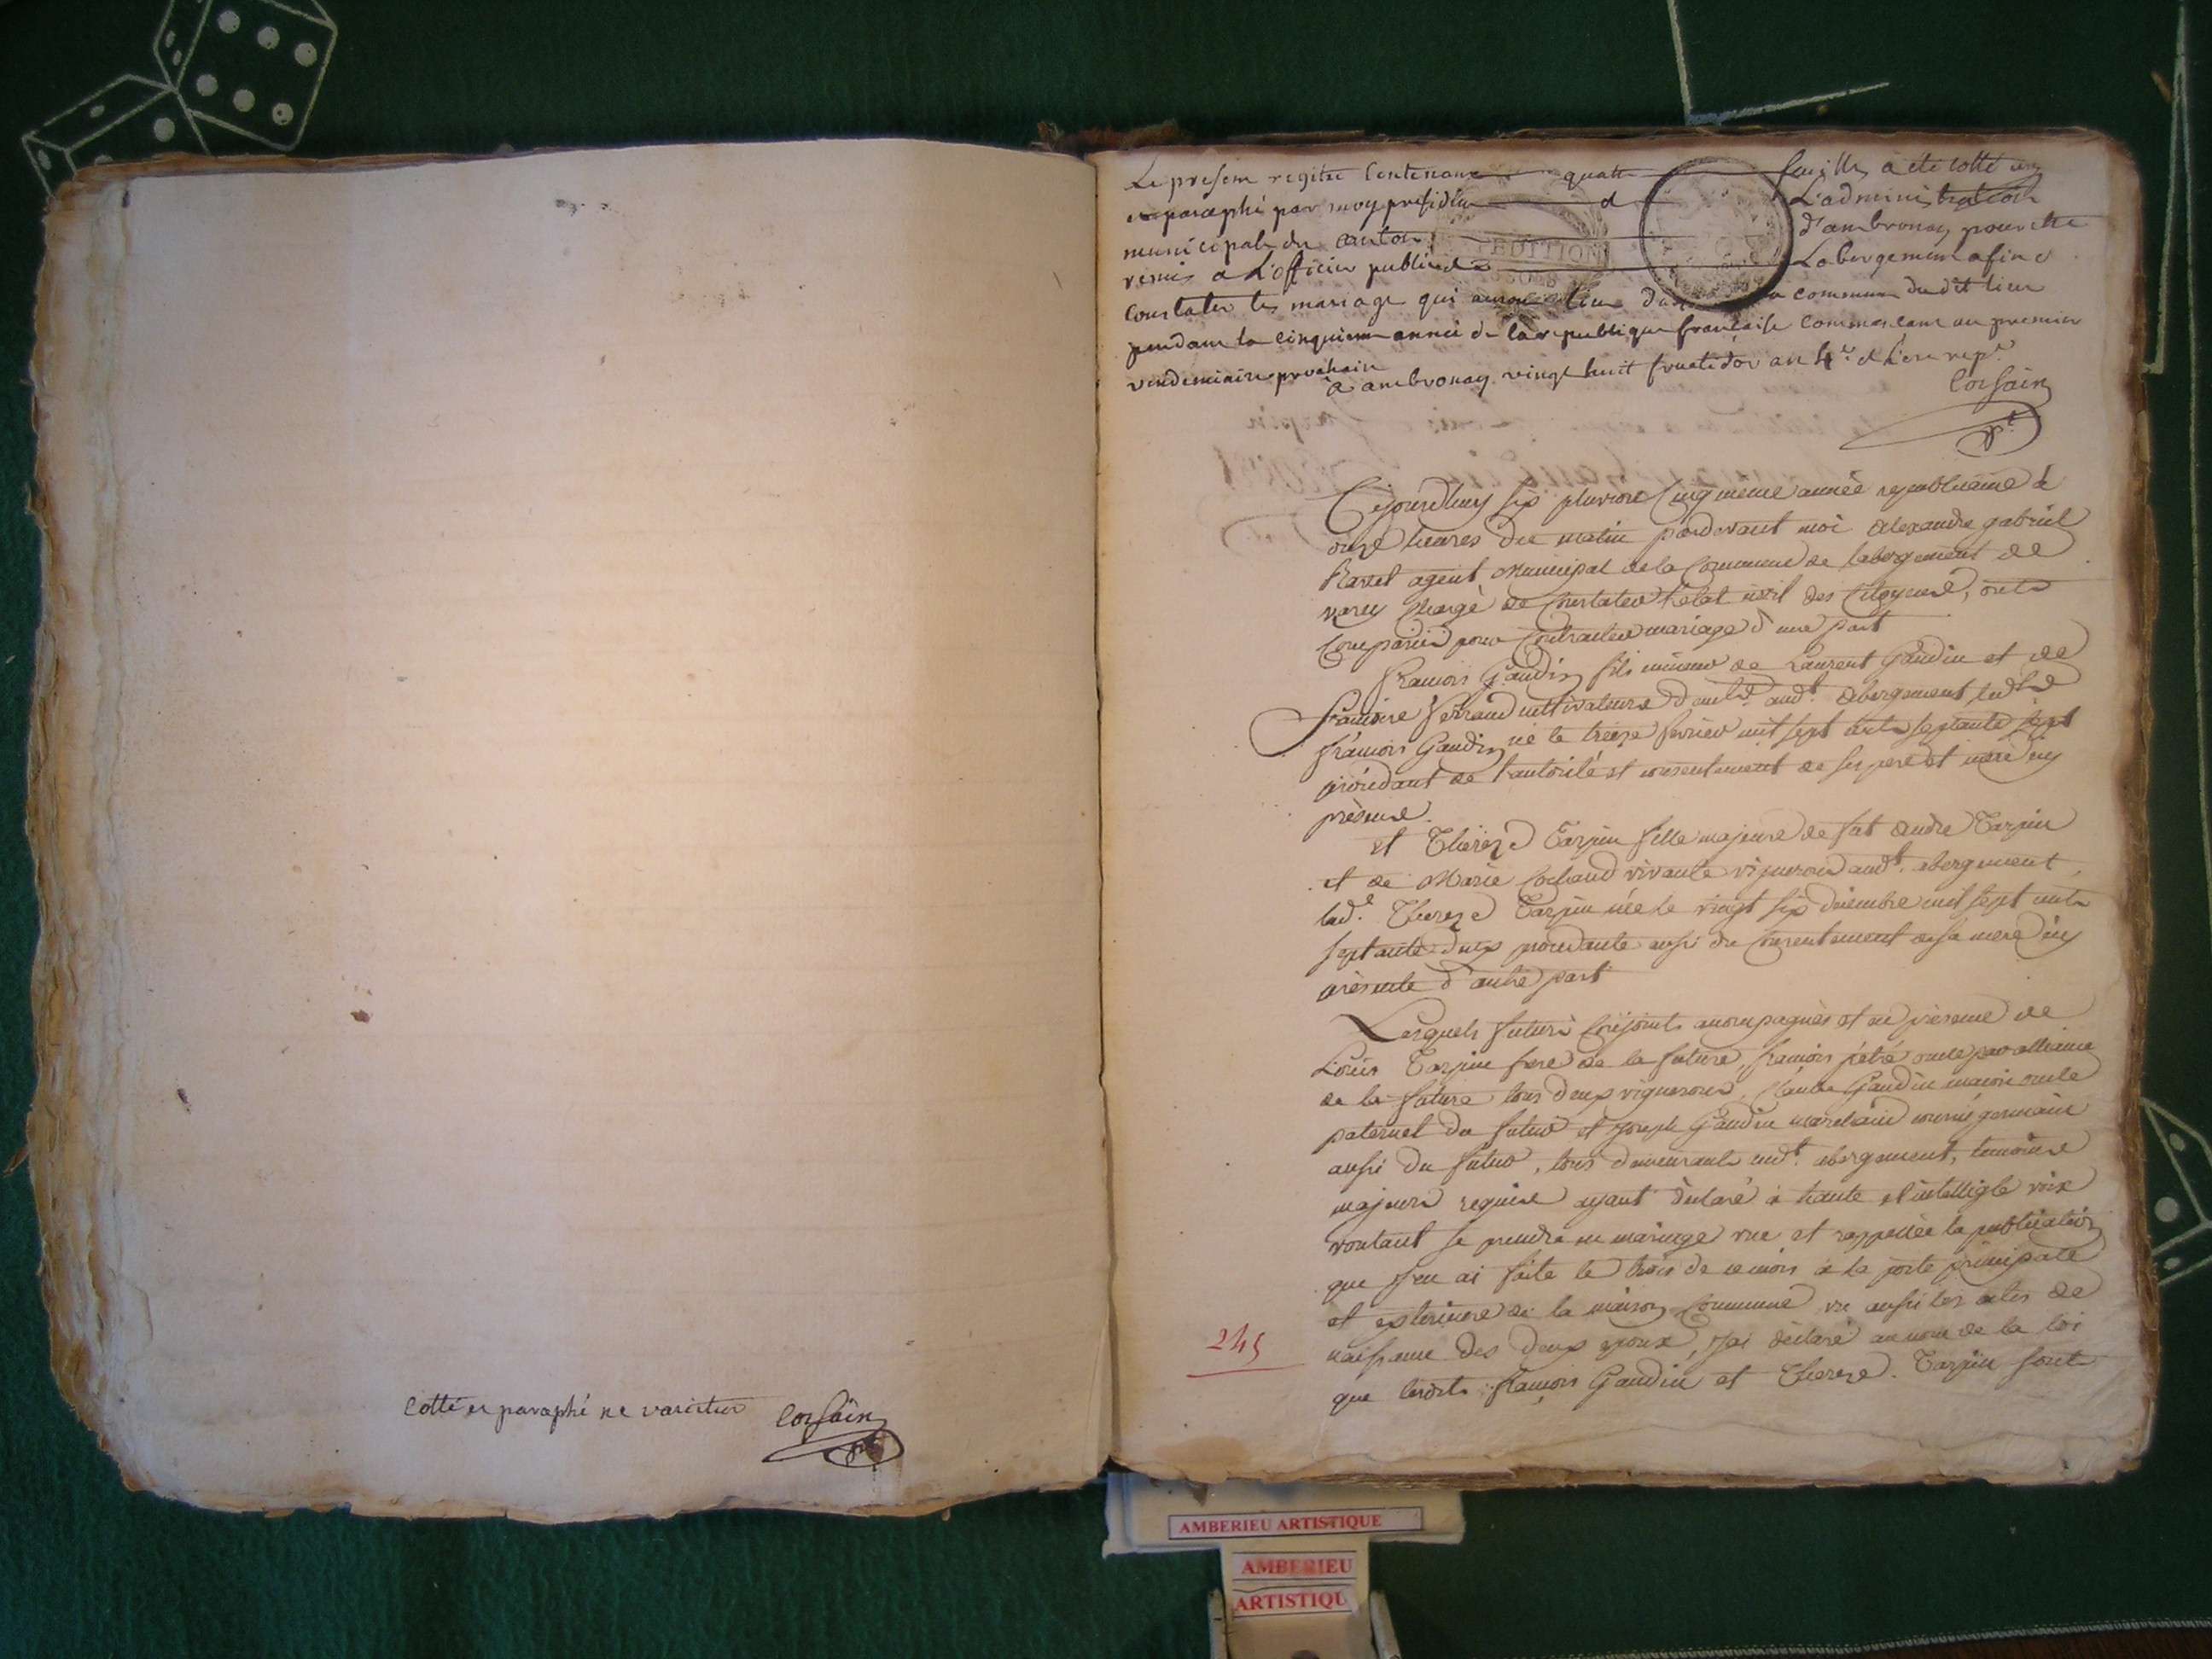 Cotté et paraphé ne varietur Corsain
pt
Le present registre contenant quatre feuillet a été cotté
et paraphé par moy president d L'administration
municipale du canton d'ambronay pour etre
remis a L'officier public de Labergement afin d
constater les mariage qui auront lieu dans la commune du dit lieu
pendant la cinquieme année de la republique française commencant au premier
vendemiaire prochain
a ambronay vingt huit fructidor an 4e. de l'ere rep.e
Corsain
pt
EDITION
Cejourdhuy six pluviose cinquieme année republicaine à
onze heures du matin pardevant moi Alexandre gabriel
agent Municipal de la Commune de labergement de
varey Chargé de Constater l'etat civil des Citoyens, onts
Comparus pour Contracter mariage d'une part
francois Gaudin fils mineur de Laurent Gaudin et de
francoise ferrand cultivateurs aud.t abergement, led.t
francois Gaudin né le treize fevrier mil sept cents septante sept
procedant de l'autorité et consentement de ses pere et mere icy
présent.
et Thérèze Tarpin fille majeure de fut Andre Tarpin
et de Marie Cochaud vivante vigneronne aud.t abergement,
lad.e Thereze Tarpin née le vingt six décembre mil sept cents
septante deux procedante aussi du Consentement de sa mere icy
présente d'autre part
Lesquels futurs Conjoints accompagnés et en présence de
Louis Tarpin frere de la future, francois pétré oncle par alliance
de la future tous deux vignerons, Claude Gaudin macon oncle
paternel du futur et Joseph Gaudin marchand cousin germain
aussi du futur, tous demeurants aud.t abergement, temoins
majeurs requis ayant déclaré à haute et intelligle voix
voulant se prendre en mariage vue et rappellée la publication
que j'en ai faite le trois de ce mois à la porte principale
et exterieure de la maison Commune vu aussi les actes de
naissance des deux epoux, J'ai déclaré au nom de la loi
que lesdits francois Gaudin et Thereze Tarpin sont
245
AMBERIEU ARTISTIQUE
AMBERIEU
ARTISTIQU